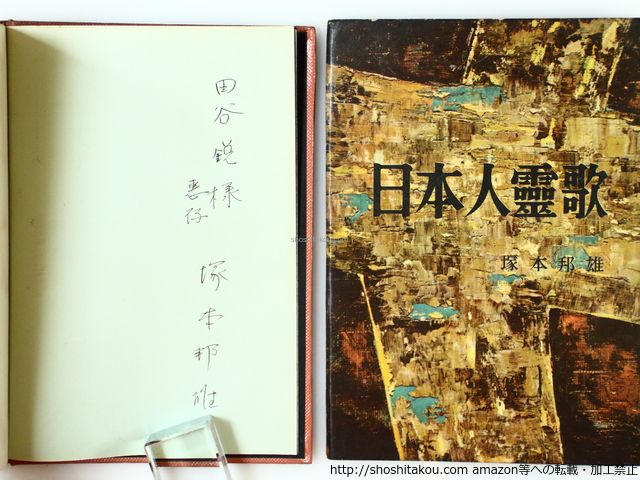 田谷鋭様
恵存
塚本邦雄
日本人靈歌
塚本邦雄
shoshitakou.com
http://shoshitakou.com amazon等への転載・加工禁止